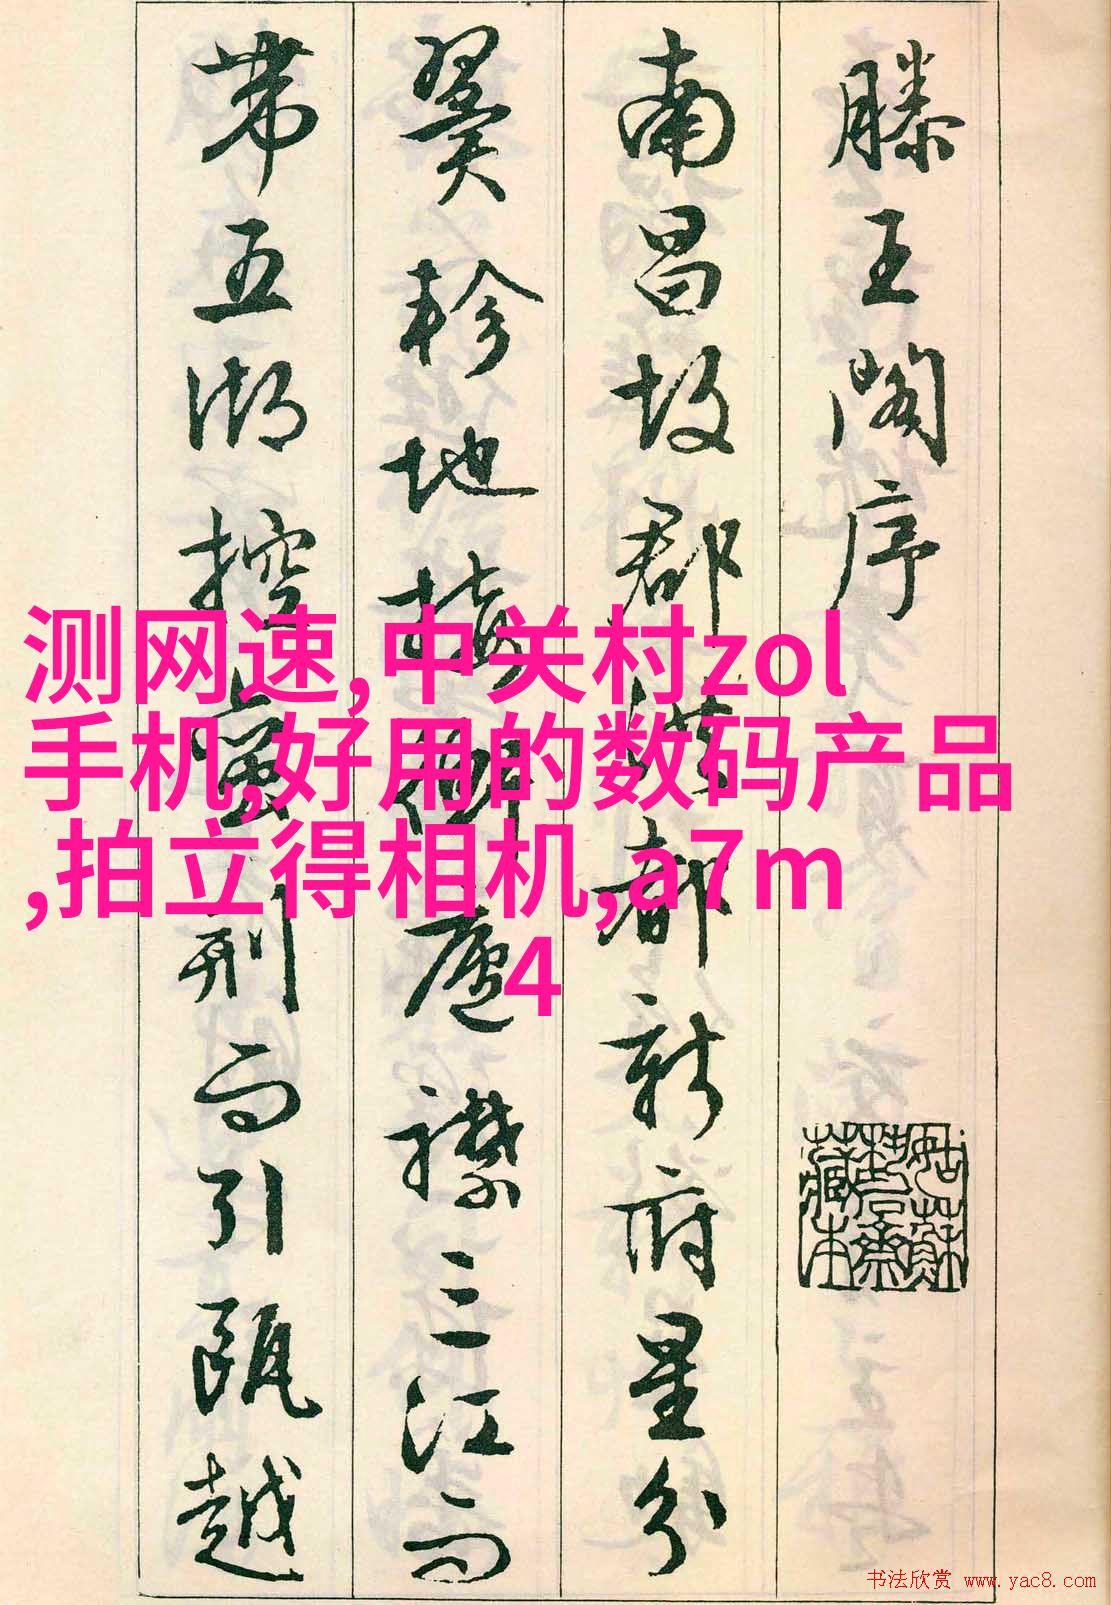 滕王阁序
南昌故郡洪都新府星分
翼轸地接衡庐襟三江而
带五湖控蛮荆而引瓯越
测网速,中关村zol
手机,好用的数码产品
,拍立得相机,a7m
4
书法欣赏 www.yac8.com